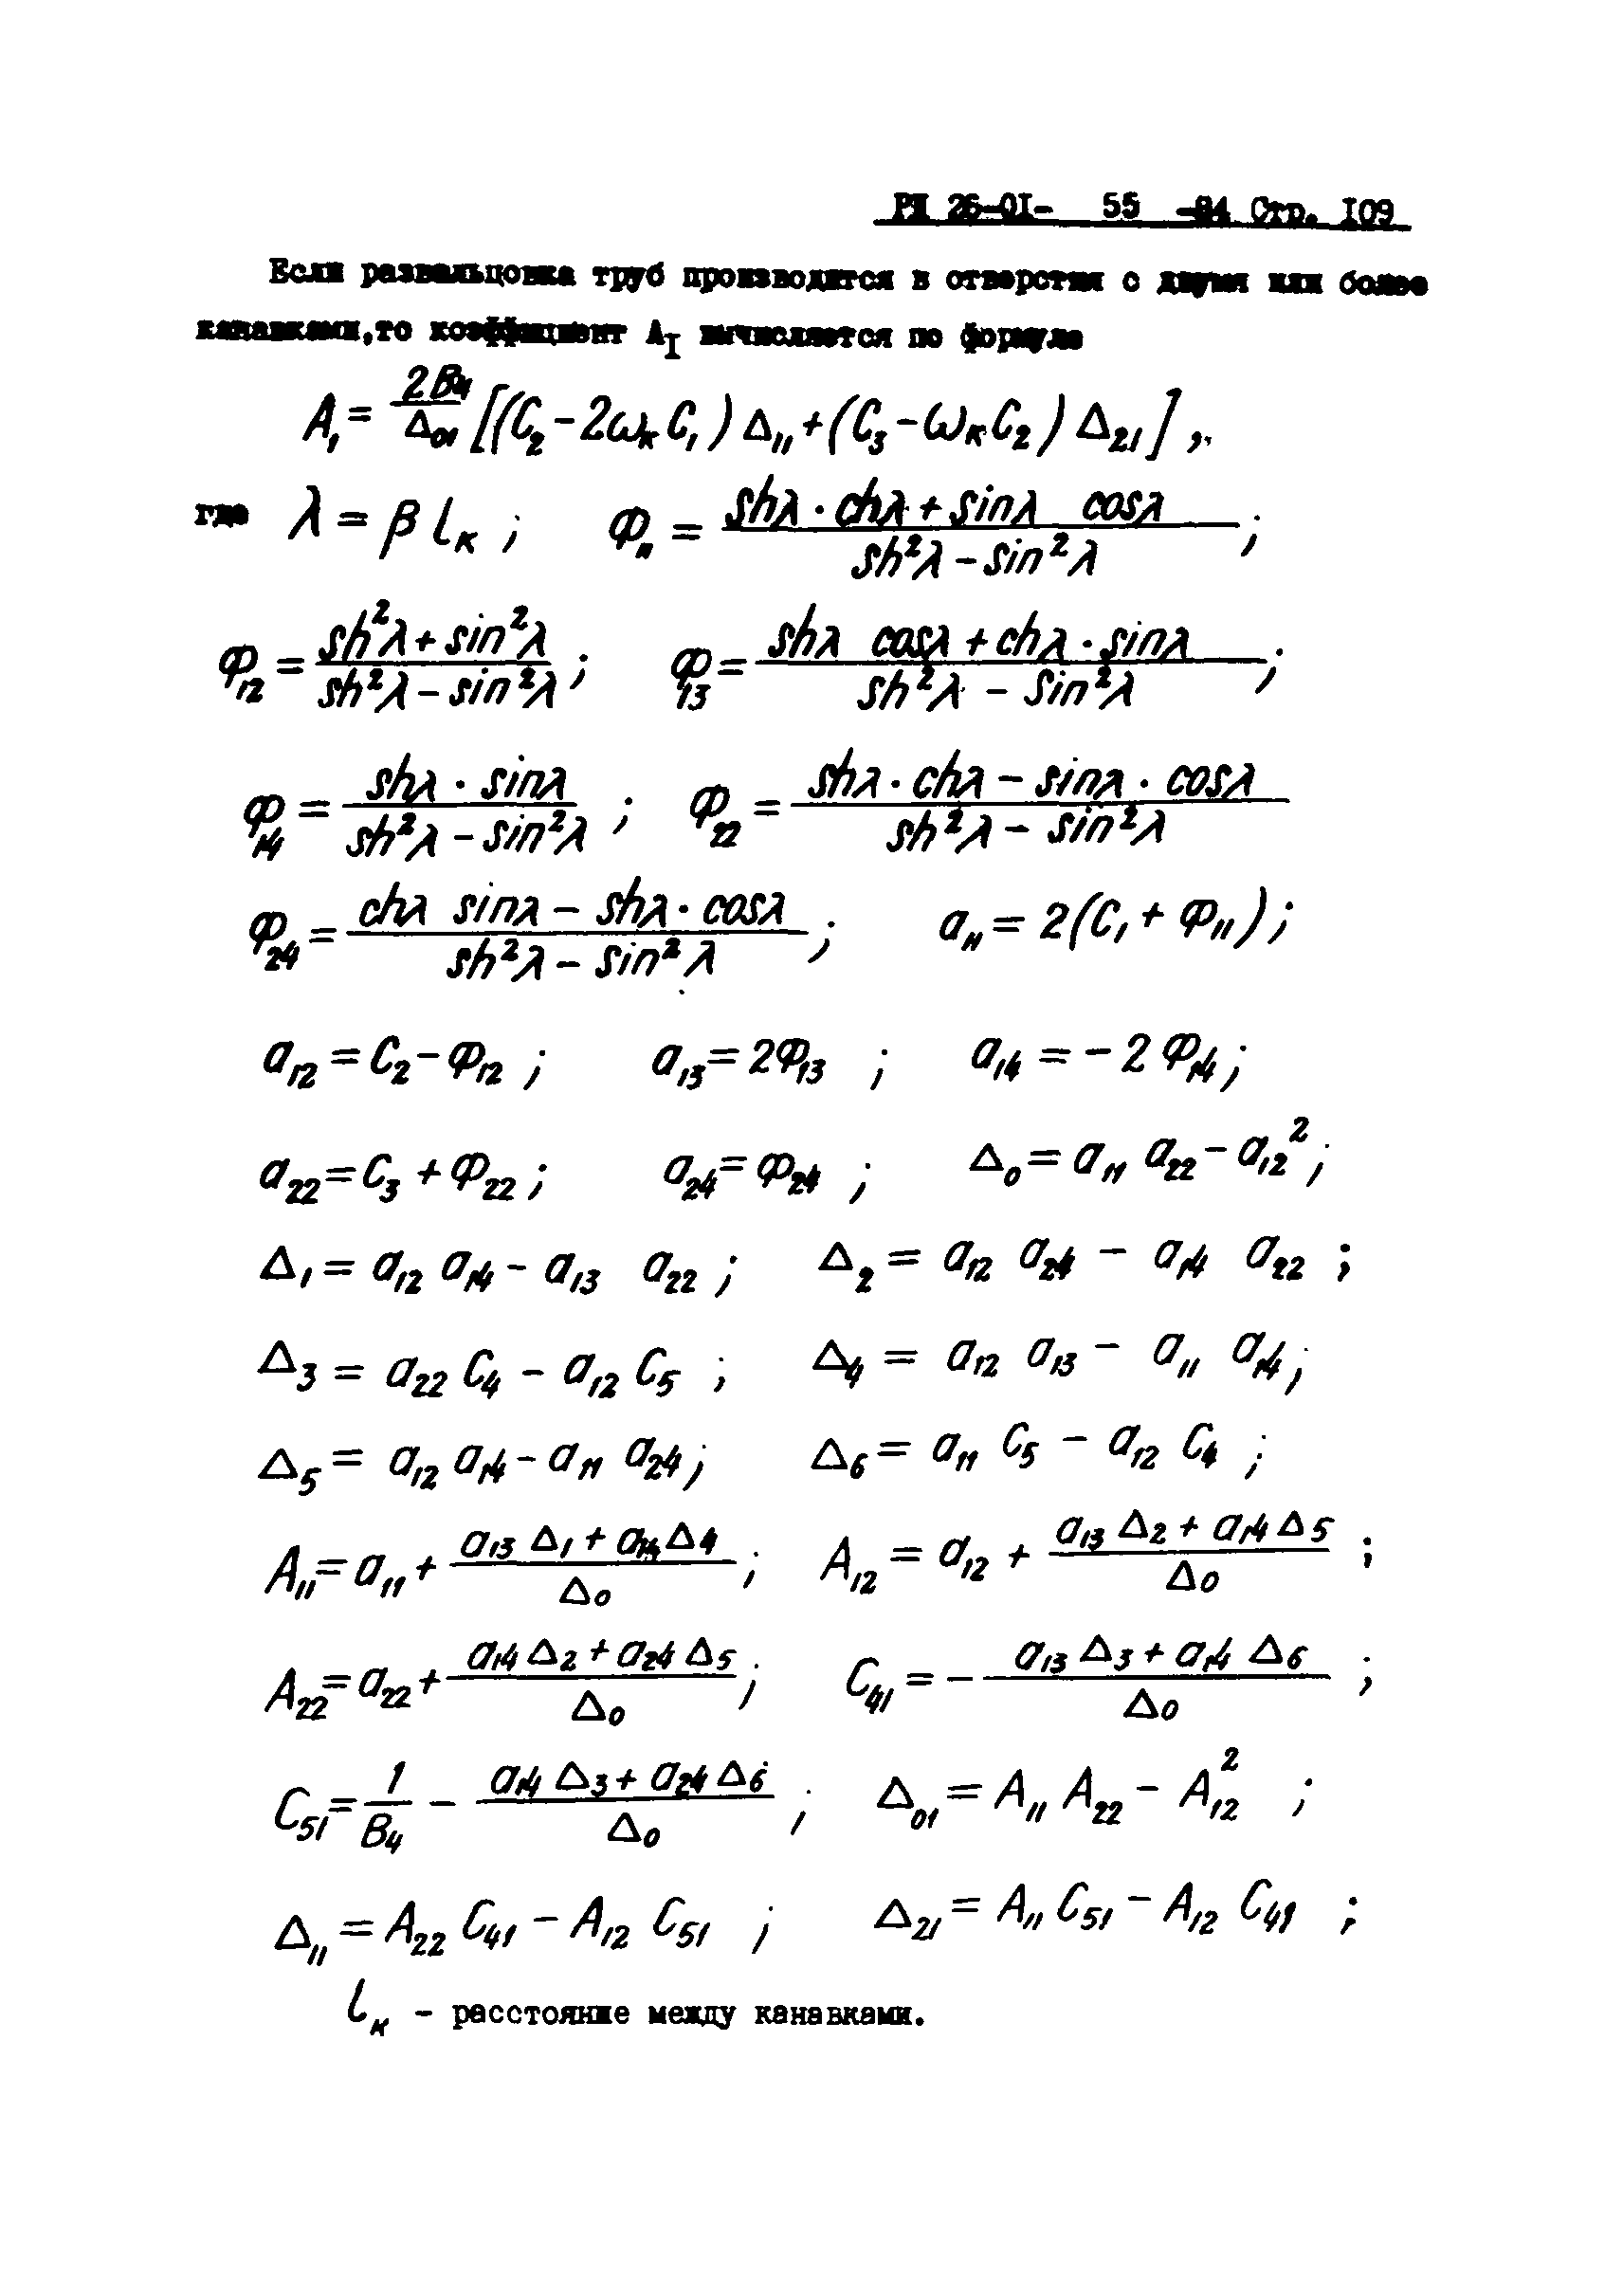 РД 26-01- 55 -84 Стр. 109
Если развальцовка труб производится в отверстия с двумя или более
канавками,то коэффициент A_I вычисляется по формуле
A₁ = 2B₄/Δ₀₁ [(C₂ - 2ω_к C₁) Δ₁₁ + (C₃ - ω_к C₂) Δ₂₁],
где λ = β l_к ; Ф₁₁ = (shλ · chλ + sinλ cosλ)/(sh²λ - sin²λ) ;
Ф₁₂ = (sh²λ + sin²λ)/(sh²λ - sin²λ) ; Ф₁₃ = (shλ cosλ + chλ · sinλ)/(sh²λ - sin²λ) ;
Ф₁₄ = (shλ · sinλ)/(sh²λ - sin²λ) ; Ф₂₂ = (shλ · chλ - sinλ · cosλ)/(sh²λ - sin²λ)
Ф₂₄ = (chλ sinλ - shλ · cosλ)/(sh²λ - sin²λ) ; a₁₁ = 2(C₁ + Ф₁₁) ;
a₁₂ = C₂ - Ф₁₂ ; a₁₃ = 2Ф₁₃ ; a₁₄ = -2Ф₁₄ ;
a₂₂ = C₃ + Ф₂₂ ; a₂₄ = Ф₂₄ ; Δ₀ = a₁₁ a₂₂ - a₁₂² ;
Δ₁ = a₁₂ a₁₄ - a₁₃ a₂₂ ; Δ₂ = a₁₂ a₂₄ - a₁₄ a₂₂ ;
Δ₃ = a₂₂ C₄ - a₁₂ C₅ ; Δ₄ = a₁₂ a₁₃ - a₁₁ a₁₄ ;
Δ₅ = a₁₂ a₁₄ - a₁₁ a₂₄ ; Δ₆ = a₁₁ C₅ - a₁₂ C₄ ;
A₁₁ = a₁₁ + (a₁₃ Δ₁ + a₁₄ Δ₄)/Δ₀ ; A₁₂ = a₁₂ + (a₁₃ Δ₂ + a₁₄ Δ₅)/Δ₀ ;
A₂₂ = a₂₂ + (a₁₄ Δ₂ + a₂₄ Δ₅)/Δ₀ ; C₄₁ = - (a₁₃ Δ₃ + a₁₄ Δ₆)/Δ₀ ;
C₅₁ = 1/B₄ - (a₁₄ Δ₃ + a₂₄ Δ₆)/Δ₀ ; Δ₀₁ = A₁₁ A₂₂ - A₁₂² ;
Δ₁₁ = A₂₂ C₄₁ - A₁₂ C₅₁ ; Δ₂₁ = A₁₁ C₅₁ - A₁₂ C₄₁ ;
l_к - расстояние между канавками.